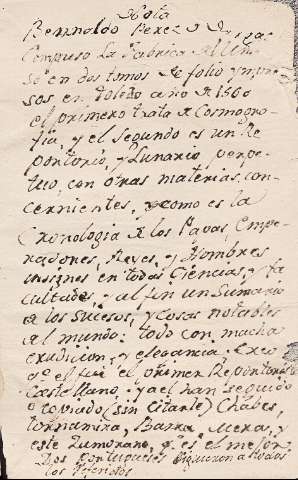 Nota
Bernaldo Perez de Vargas
Compuso La Fabrica del Uni
so en dos tomos de folio ympre
sos en Toledo año de 1560
el primero trata de Cosmogra
fia, y el segundo es un Re
portorio, y Lunario perpe
tuo, con otras materias con
cernientes, y como es la
Cronologia de los Papas Empe
radores, Reyes, y Hombres
insignes en todas Ciencias, y fa
cultades, y al fin un Sumario
de los sucesos, y cosas notables
del mundo: todo con mucha
erudicion, y elegancia; Creo
qe el fue el primer Reportorio
Castellano, y a el han seguido
o copiado (sin citarle) Chabes,
tornamira, Barra
este Zamorano, qe es el mejor
Dos Portugueses siguieron a todos
los Referidos